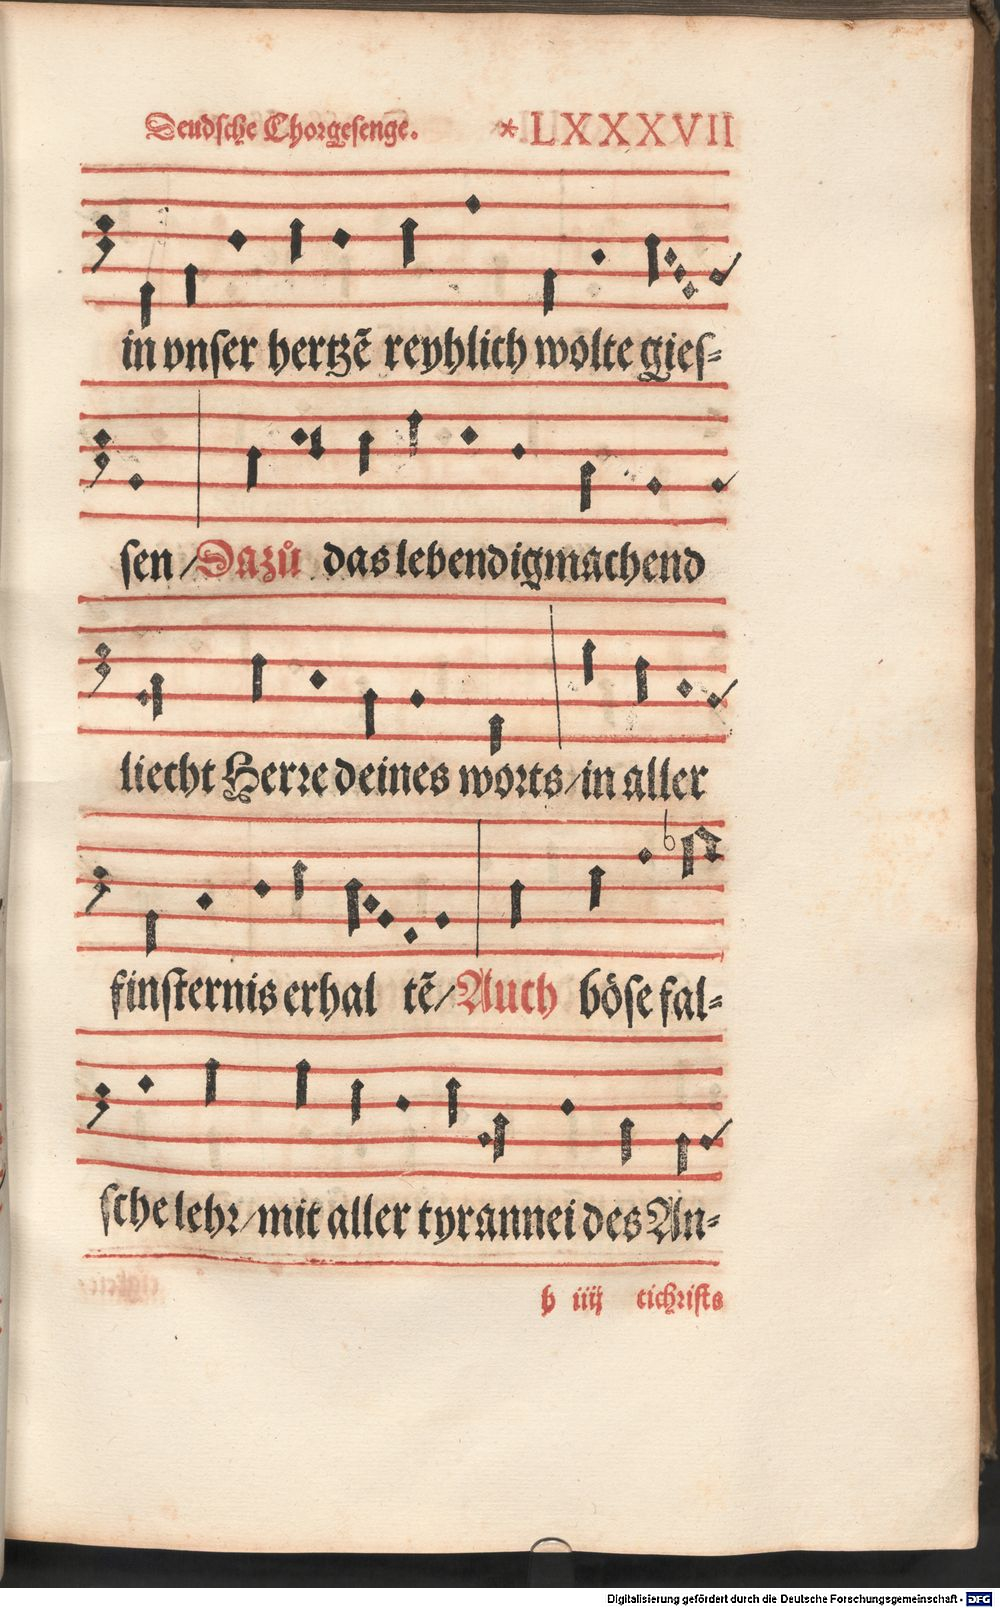 Deudsche Chorgesenge. * LXXXVII
in vnser hertzẽ reyhlich wolte gies=
sen / Dazů das lebendigmachend
liecht Herre deines worts / in aller
finsternis erhal tẽ / Auch böse fal=
sche lehr / mit aller tyrannei des An=
b iiij tichrists
Digitalisierung gefördert durch die Deutsche Forschungsgemeinschaft - DFG